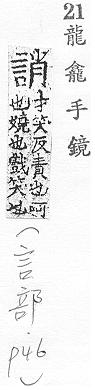 21 龍龕手鏡
誚才笑反責也呵
也嬈也戲笑也
(言部.p46)